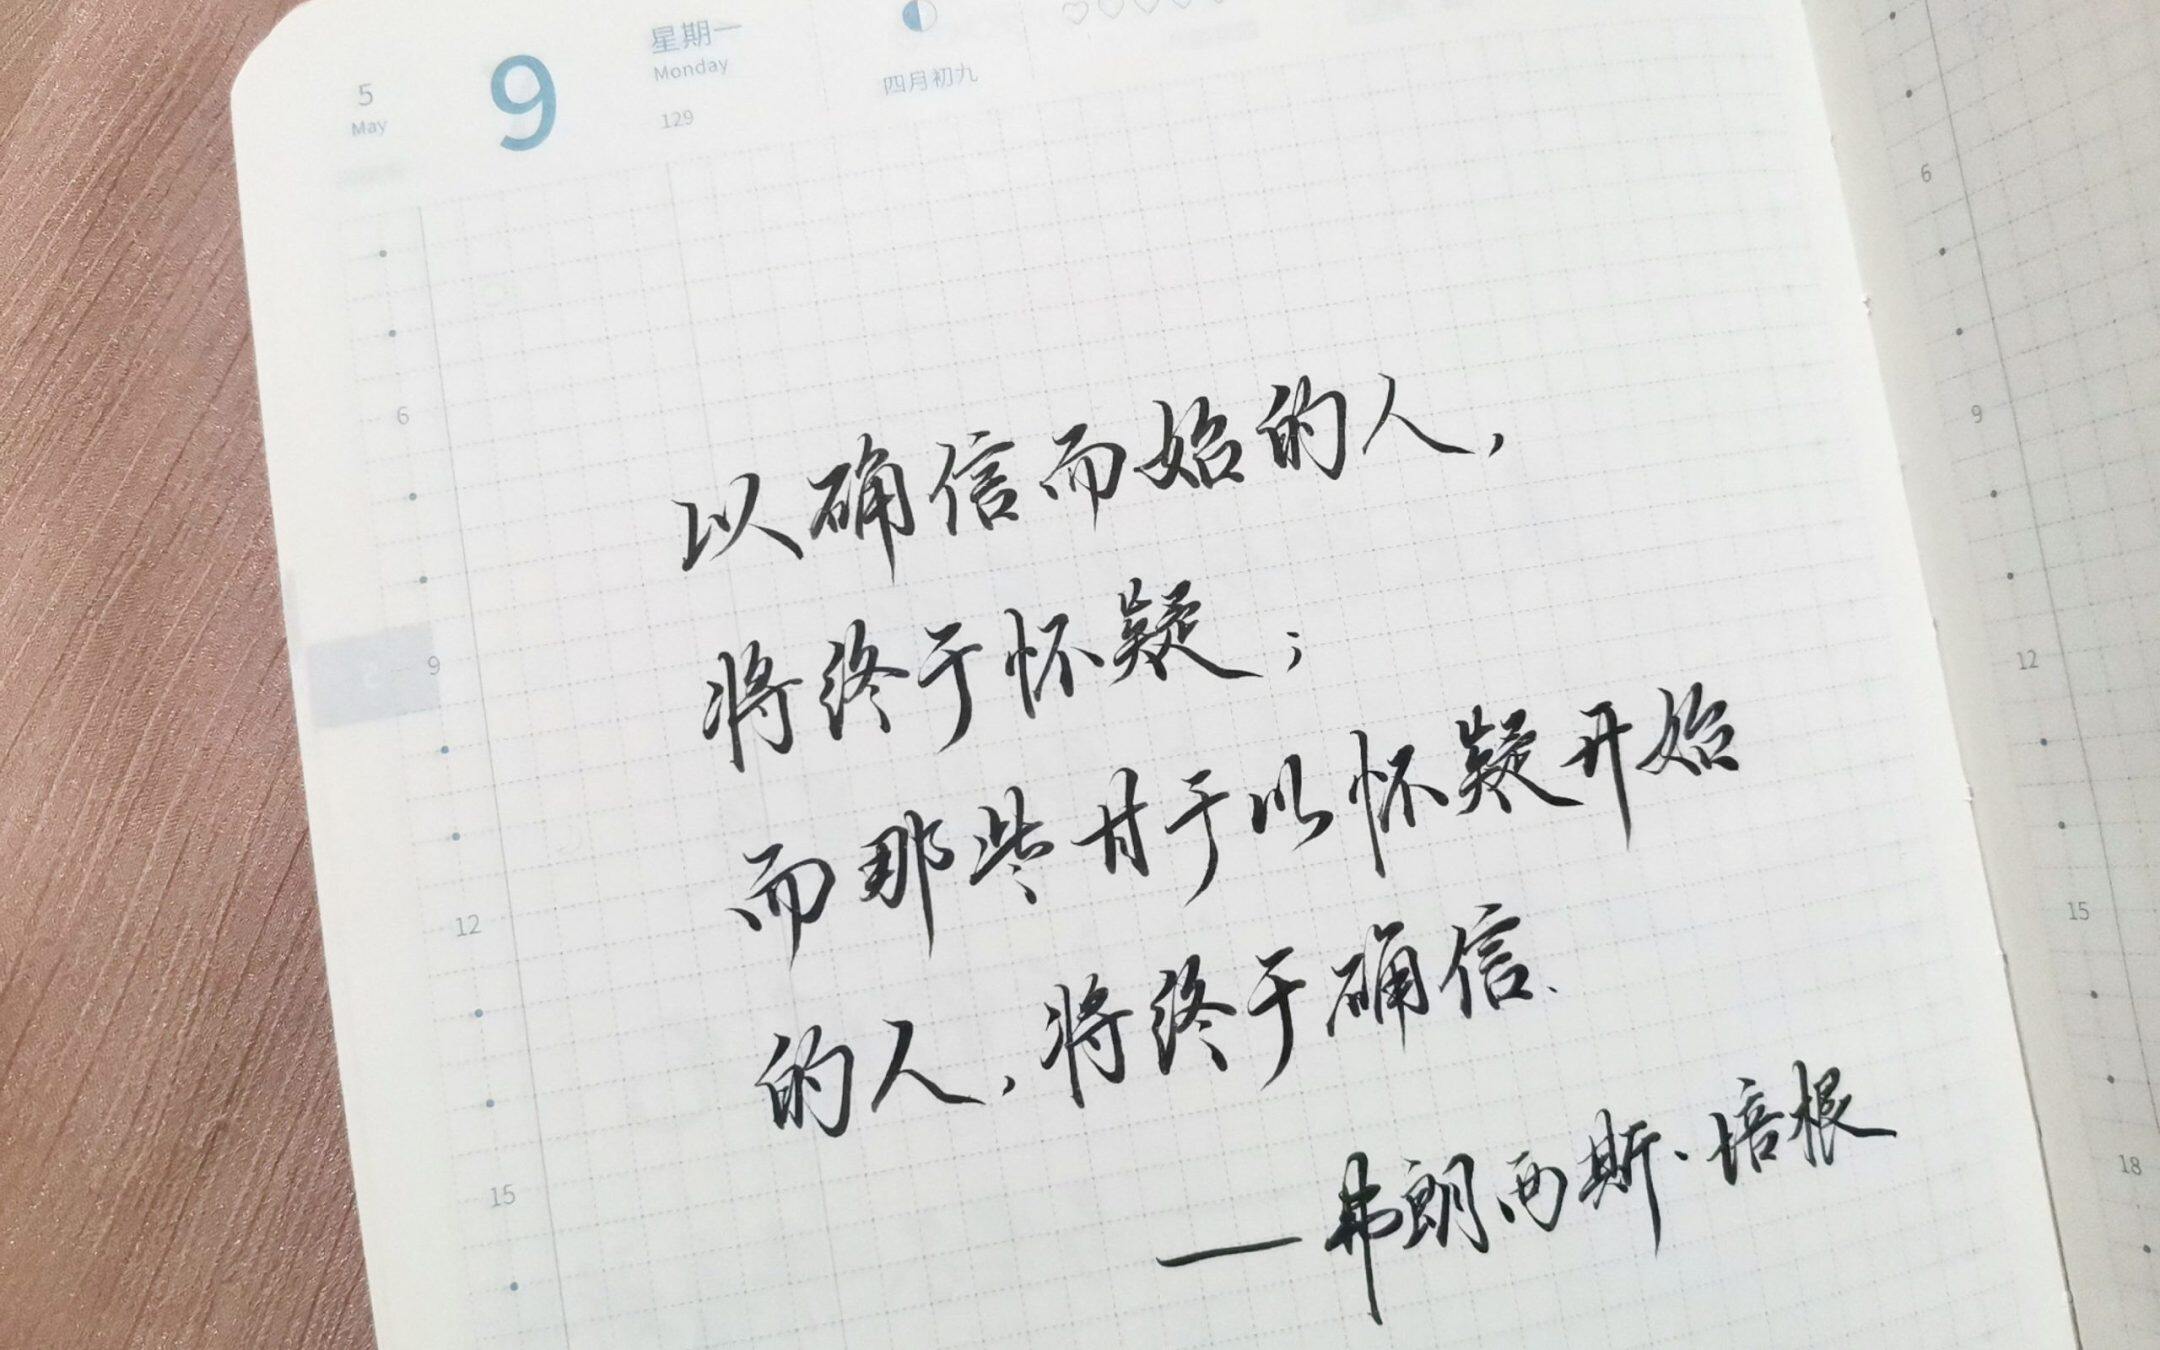 5
May
9
星期一
Monday
129
四月初九
6
9
12
15
以确信而始的人,
将终于怀疑;
而那些甘于以怀疑开始
的人,将终于确信.
——弗朗西斯·培根
6
9
12
15
18